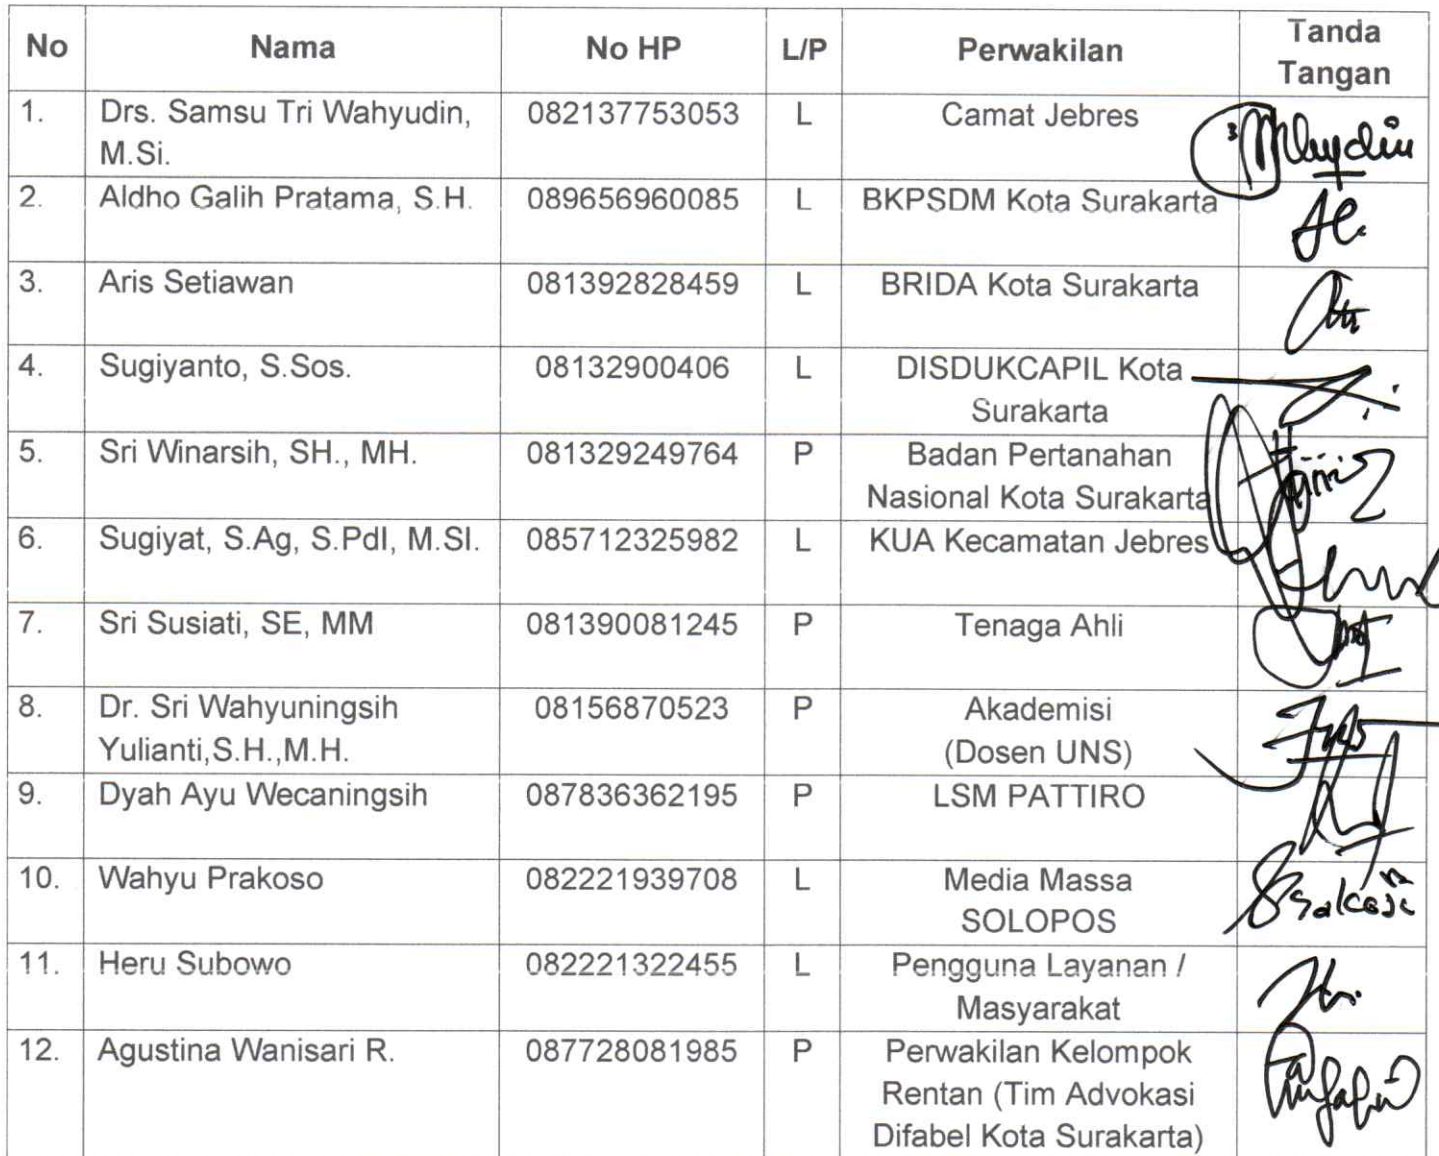 No Nama No HP L/P Perwakilan Tanda
Tangan
1. Drs. Samsu Tri Wahyudin, 082137753053 L Camat Jebres
M.Si.
2. Aldho Galih Pratama, S.H. 089656960085 L BKPSDM Kota Surakarta
3. Aris Setiawan 081392828459 L BRIDA Kota Surakarta
4. Sugiyanto, S.Sos. 08132900406 L DISDUKCAPIL Kota
Surakarta
5. Sri Winarsih, SH., MH. 081329249764 P Badan Pertanahan
Nasional Kota Surakarta
6. Sugiyat, S.Ag, S.PdI, M.SI. 085712325982 L KUA Kecamatan Jebres
7. Sri Susiati, SE, MM 081390081245 P Tenaga Ahli
8. Dr. Sri Wahyuningsih 08156870523 P Akademisi
Yulianti,S.H.,M.H. (Dosen UNS)
9. Dyah Ayu Wecaningsih 087836362195 P LSM PATTIRO
10. Wahyu Prakoso 082221939708 L Media Massa
SOLOPOS
11. Heru Subowo 082221322455 L Pengguna Layanan /
Masyarakat
12. Agustina Wanisari R. 087728081985 P Perwakilan Kelompok
Rentan (Tim Advokasi
Difabel Kota Surakarta)